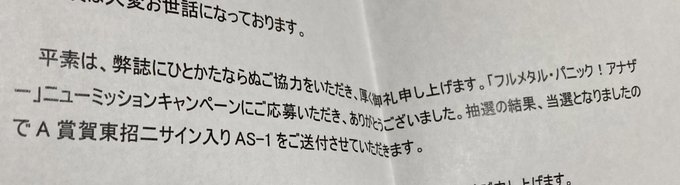 は大変お世話になっております。
平素は、弊誌にひとかたならぬご協力をいただき、厚く御礼申し上げます。「フルメタル・パニック！アナザ
ー」ニューミッションキャンペーンにご応募いただき、ありがとうございました。抽選の結果、当選となりましたの
で A 賞賀東招二サイン入り AS-1 をご送付させていただきます。
申し上げます。